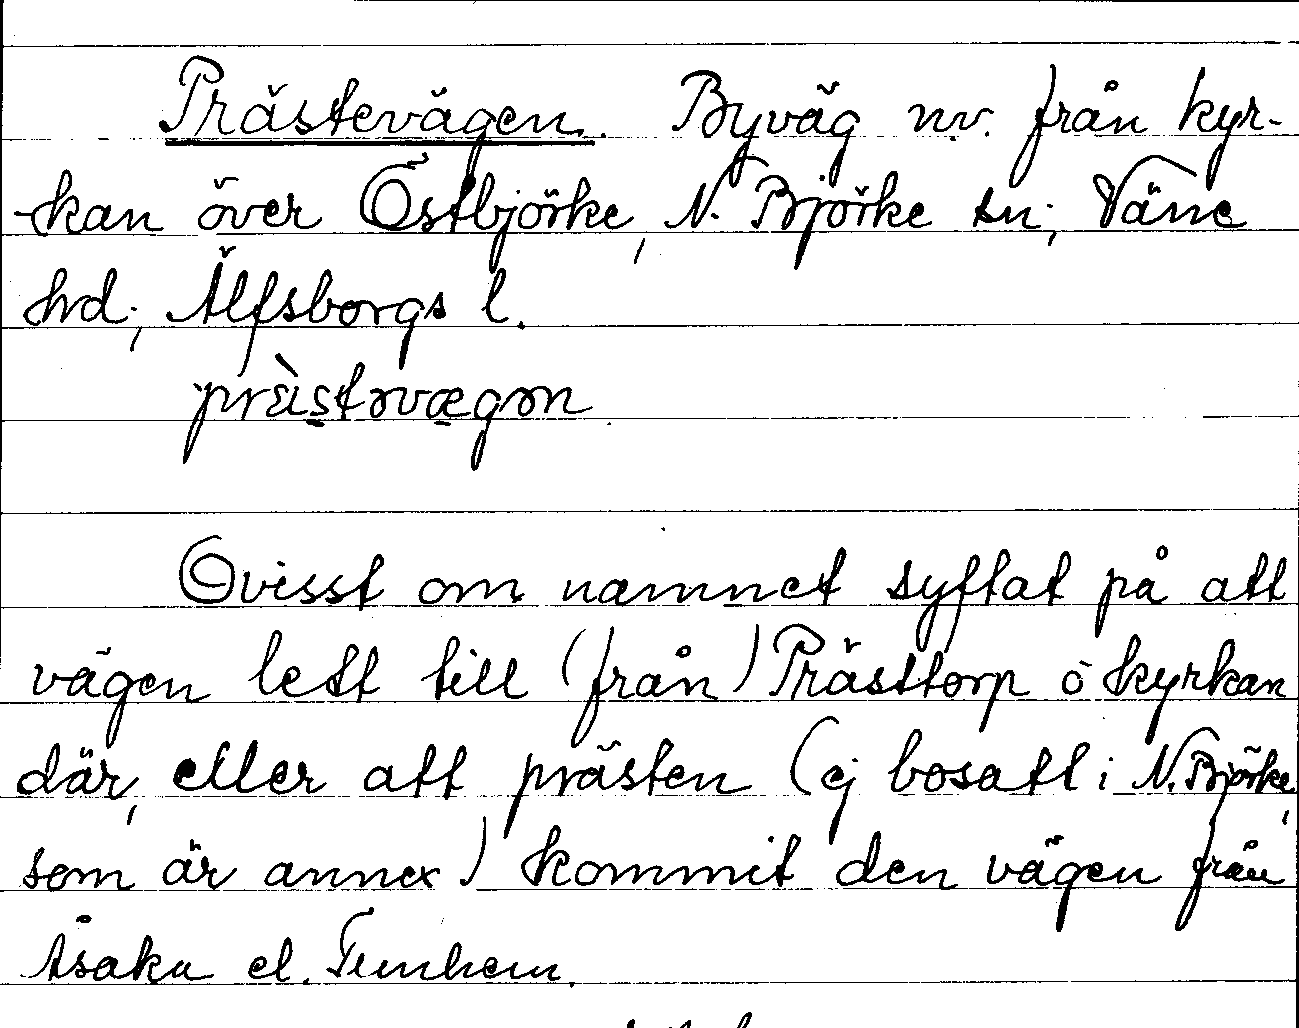 Prästevägen. Byväg nv. från kyr-
kan över Östbjörke, N. Björke sn; Väne
hd; Älfsborgs l.
Ovisst om namnet syftat på att
vägen lett till (från) Prästtorp ö kyrkan
där, eller att prästen (ej bosatt i N. Björke,
som är annex) kommit den vägen från
Åsaka el. Tunhem.